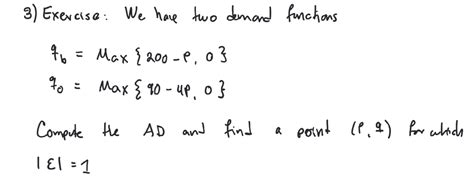 3) Exercise: We have two demand functions
q_b = Max { 200 - P, 0 }
q_o = Max { 90 - 4P, 0 }
Compute the AD and find a point (P, q) for which
|ε| = 1